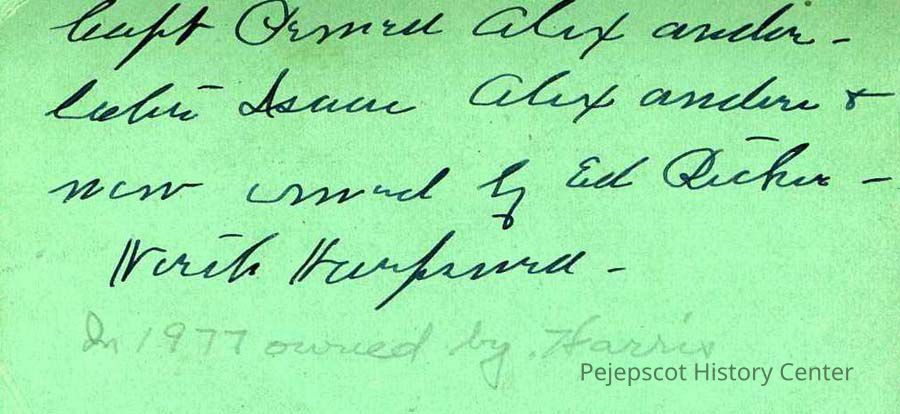 Capt Ormed Alexander -
later Isaac Alexanders &
now owned by Ed Ricker -
North Harpswell -
In 1977 owned by Harris
Pejepscot History Center